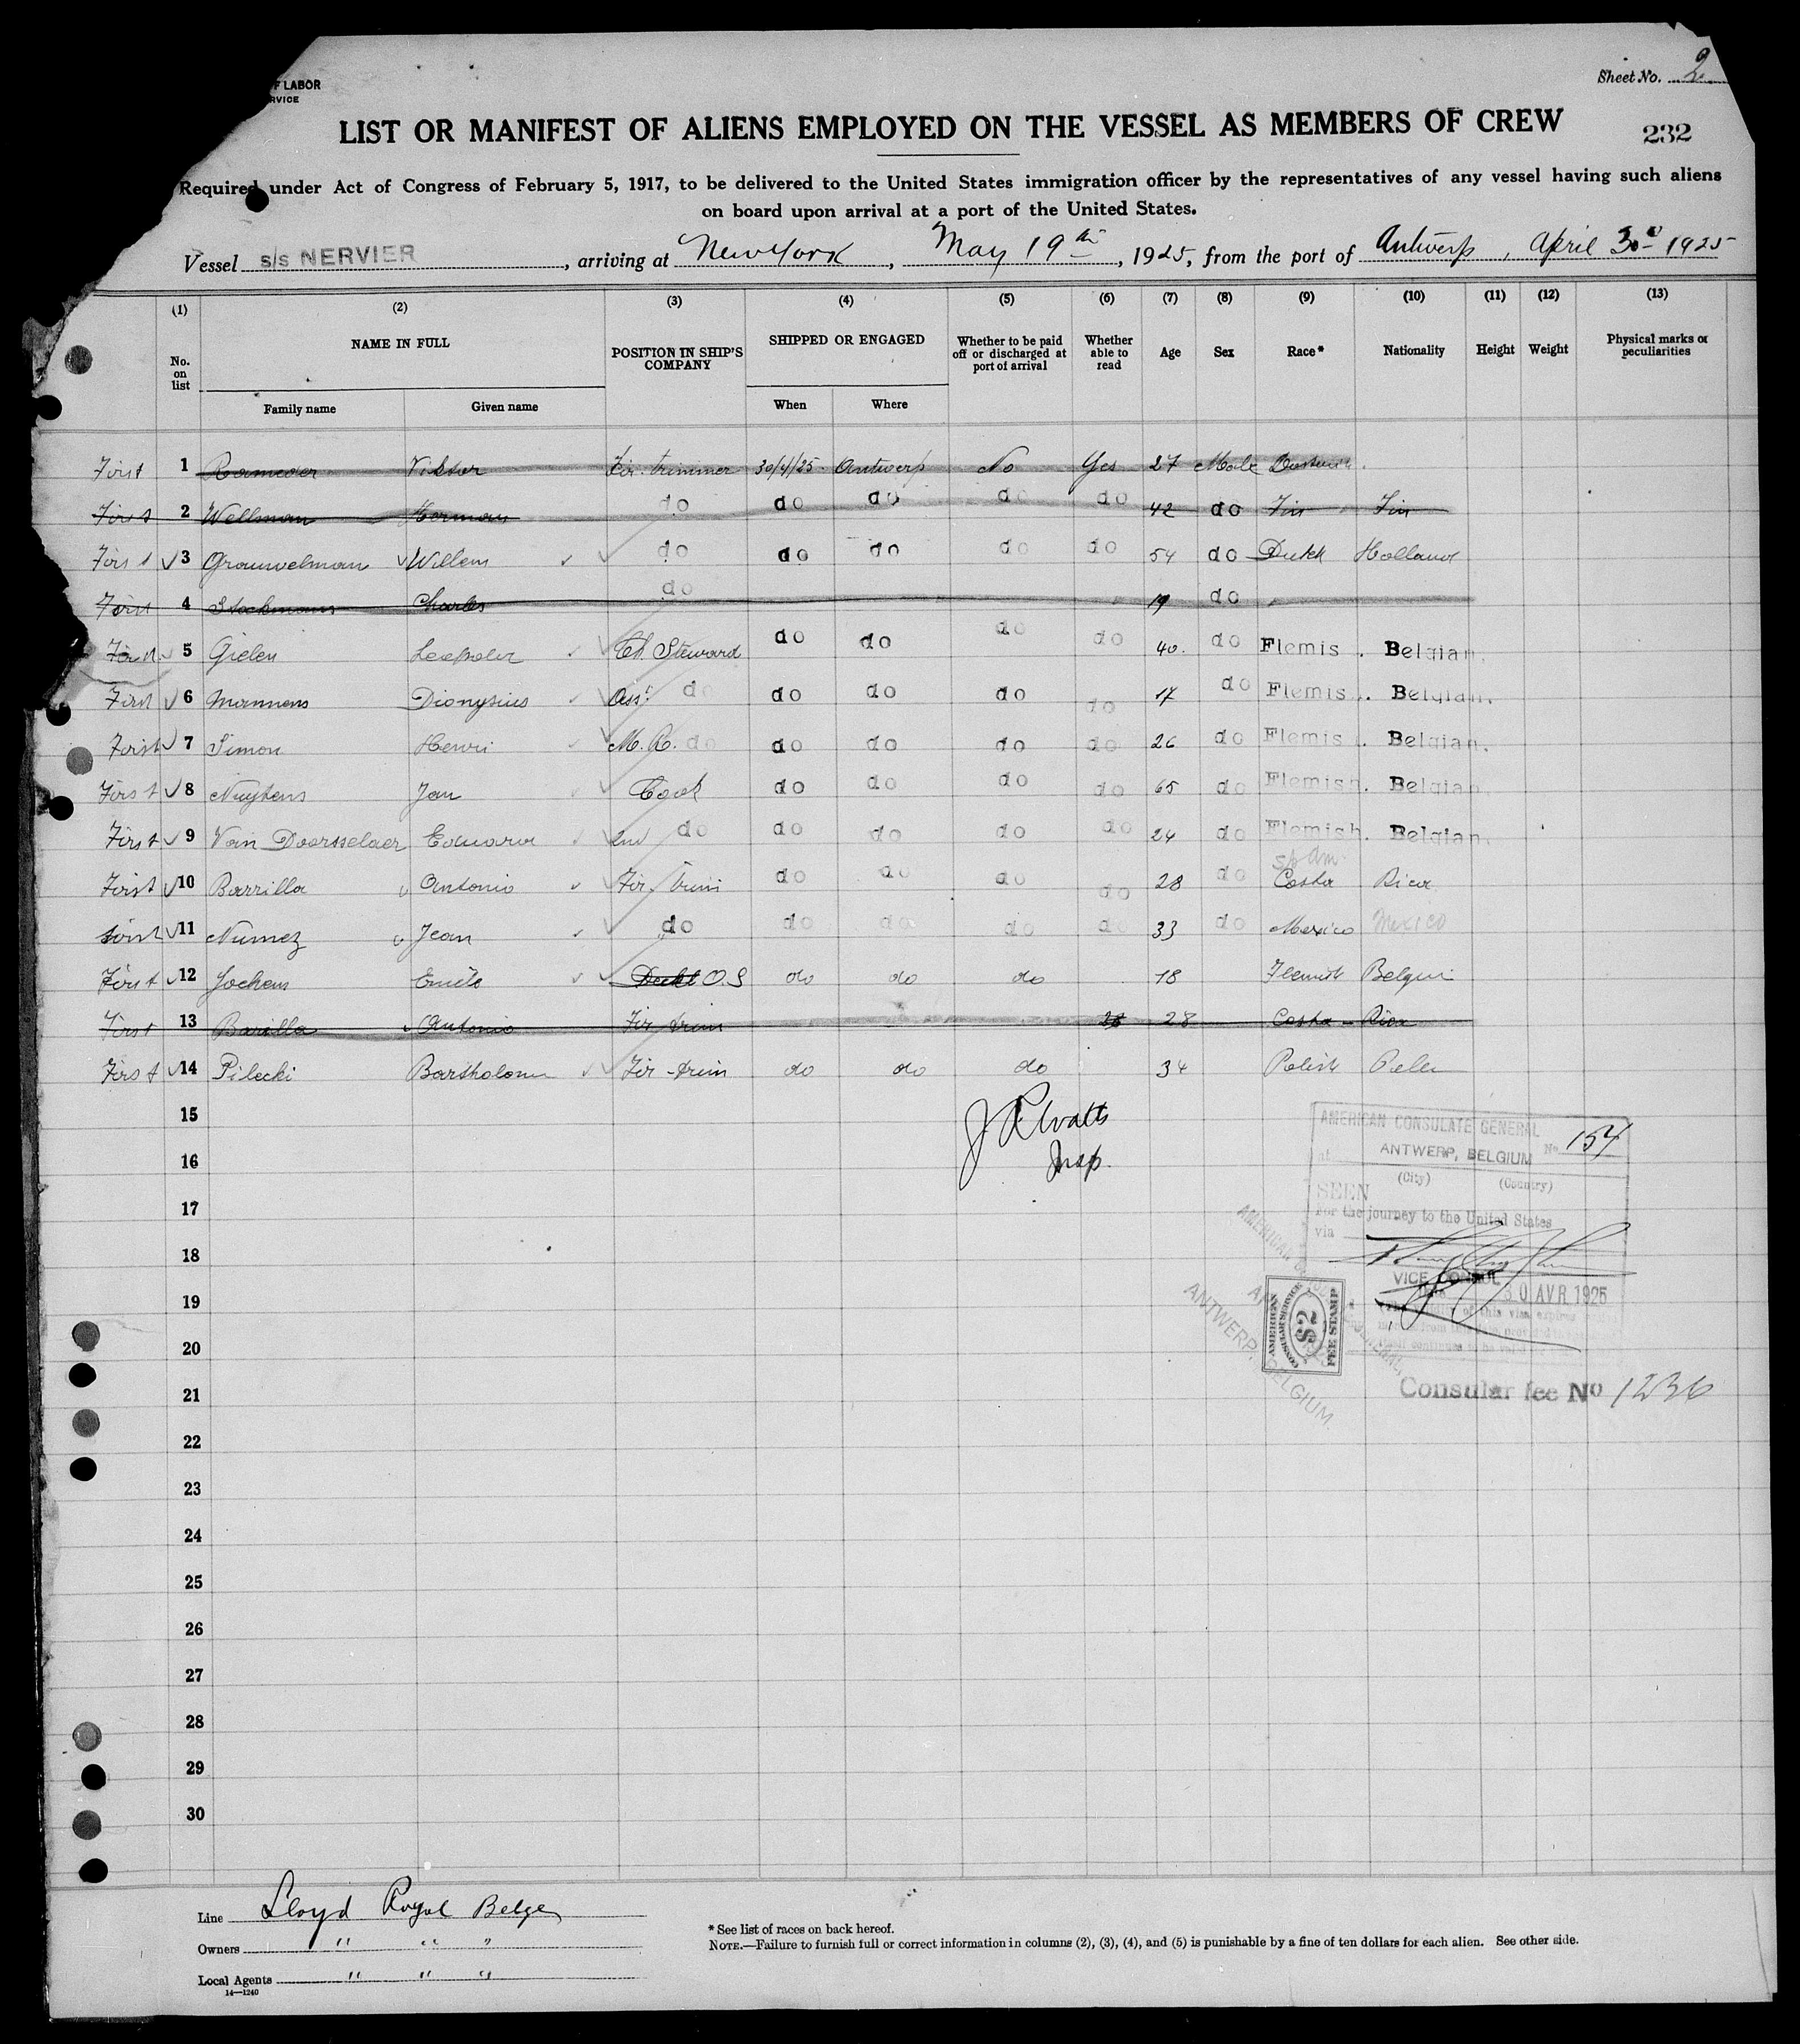 F LABOR
RVICE
Sheet No. 2
LIST OR MANIFEST OF ALIENS EMPLOYED ON THE VESSEL AS MEMBERS OF CREW
232
Required under Act of Congress of February 5, 1917, to be delivered to the United States immigration officer by the representatives of any vessel having such aliens
on board upon arrival at a port of the United States.
Vessel s/s NERVIER, arriving at New York, May 19th, 1925, from the port of Antwerp, April 30 1925
(1) (2) (3) (4) (5) (6) (7) (8) (9) (10) (11) (12) (13)
No. on list NAME IN FULL POSITION IN SHIP'S COMPANY SHIPPED OR ENGAGED Whether to be paid off or discharged at port of arrival Whether able to read Age Sex Race* Nationality Height Weight Physical marks or peculiarities
Family name Given name When Where
First 1 Viktor Fir. trimmer 30/4/25 Antwerp No Yes 27 Male
First 2 Wellsman Herman do do do do do 42 do Fin Fin
First 3 Grouwelman Willem do do do do do 54 do Dutch Holland
First 4 Stockmans Charles do 19 do
First 5 Gielen Leopold Ch. Steward do do do do 40 do Flemis. Belgian.
First 6 Mannens Dionysius Asst do do do do do 17 do Flemis. Belgian.
First 7 Simon Henri M. R. do do do do do 26 do Flemis. Belgian.
First 8 Nuytens Jan Cook do do do do 65 do Flemish. Belgian.
First 9 Van Doorsselaer Edward 2nd do do do do do 24 do Flemish. Belgian.
Sp am.
First 10 Barrilla Antonio Fir. trim do do do do 28 do Costa Rica
First 11 Numez Jean do do do do do 33 do Mexico Mexico
First 12 Jochems Emile Deckt O.S do do do 18 Flemish
First 13 Barilla Antonio Fir trim 28 28 Costa - Rica
First 14 Pilecki Bartholom Fir-trim do do do 34 Polish
15
16
J R Watts
Insp.
17
18
19
20
21
22
23
24
25
26
27
28
29
30
AMERICAN CONSULATE GENERAL
at ANTWERP, BELGIUM No. 154
(City) (Country)
SEEN
For the journey to the United States
via
VICE CONSUL
30 AVR 1925
AMERICAN CONSULAR SERVICE $2 FEE STAMP
ANTWERP, BELGIUM.
Consular fee No 1236
Line Lloyd Royal Belge
Owners " " "
Local Agents " " "
14—1240
* See list of races on back hereof.
NOTE.—Failure to furnish full or correct information in columns (2), (3), (4), and (5) is punishable by a fine of ten dollars for each alien. See other side.